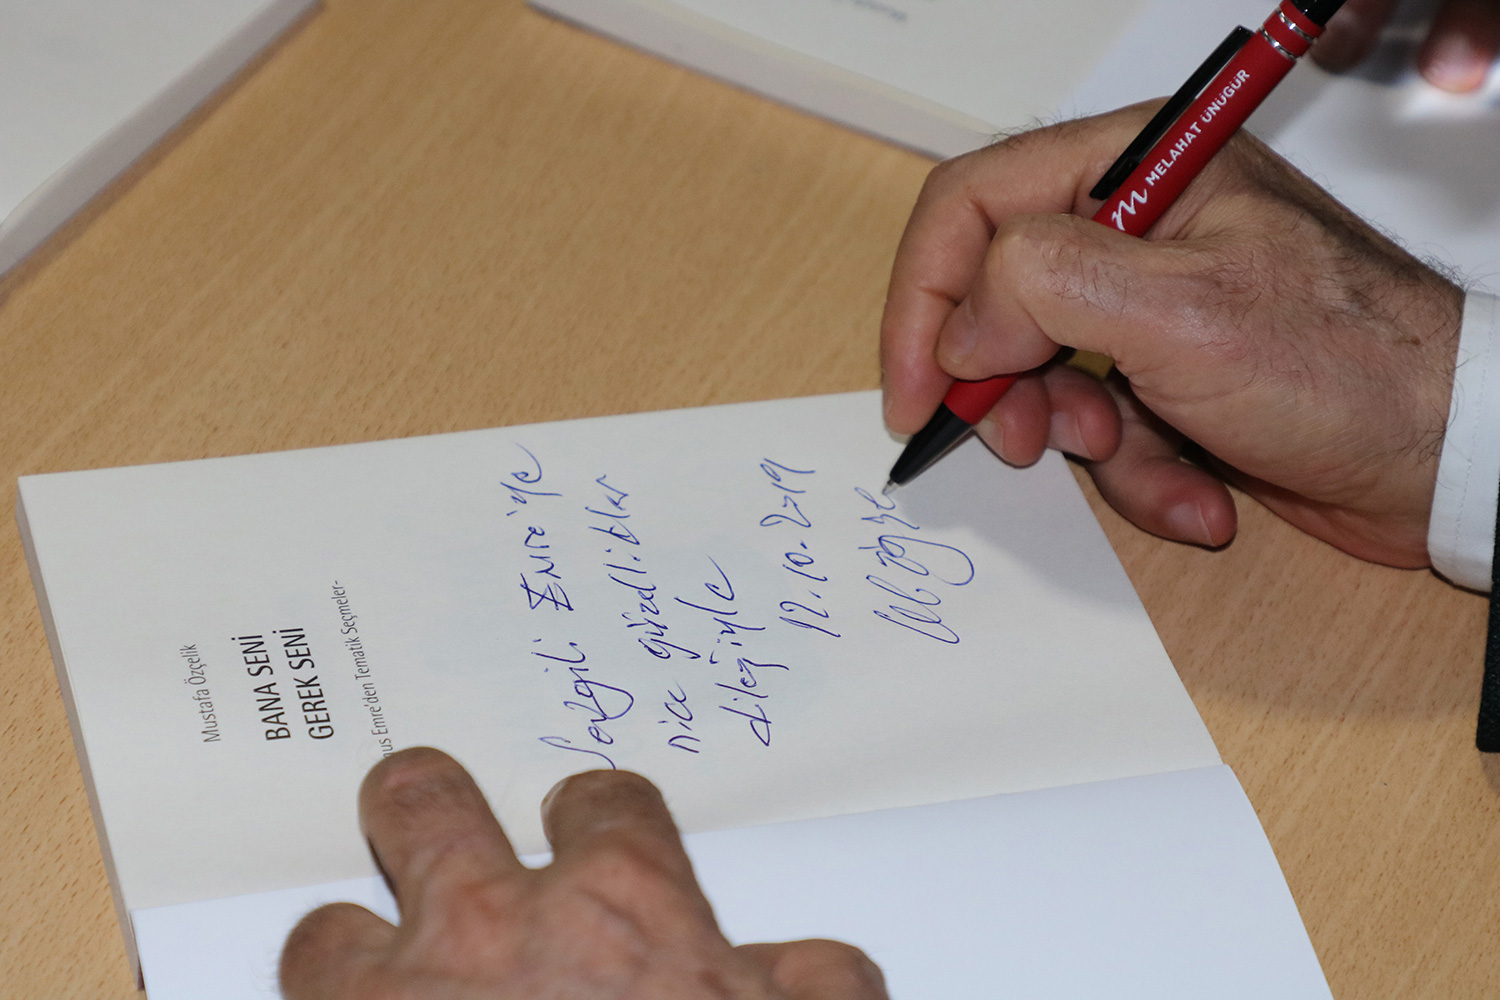 Mustafa Özçelik
BANA SENİ
GEREK SENİ
nus Emre'den Tematik Seçmeler-
Sevgili Emre'ye
nice güzellikler
dileğiyle
12.10.2019
m MELAHAT ÜNÜGÜR